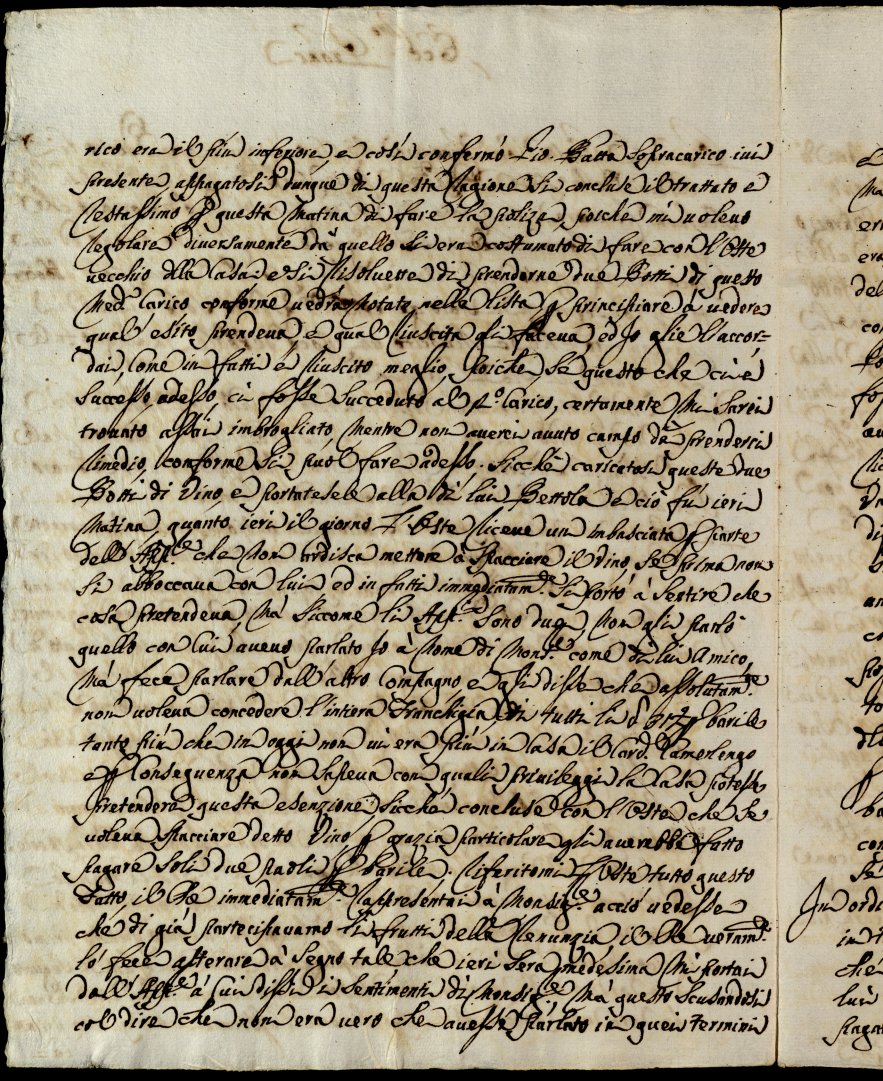 rico era il più inferiore, e così confermò Gio. Batta Sopracarico ivi
presente, appagatosi dunque di questa ragione si concluse il trattato e
restassimo p questa matina di fare la poliza, poiche mi volevo
regolare diversamente da quello si era costumato di fare con l'Oste
vecchio dlla Casa: e si risolvette di prenderne due Botti di questo
Med.º Carico conforme vedrà notato nella lista p principiare à vedere
qual esito prendeva, e qual riuscita gli faceva, ed Io glie l'accor=
dai, Come in fatti è riuscito meglio, poiche, se questo che ci è
successo adesso, ci fosse succeduto al p.º Carico, certamente mi sarei
trovato assai imbrogliato, mentre non averei avuto campo da prenderci
rimedio, conforme si puol fare adesso. Sicchè caricatosi queste due
Botti di Vino, e portatesele alla di lui Bettola e ciò fu ieri
Matina, quanto ieri il giorno l'Oste riceve un imbasciata p parte
dell'App.re che non ardisca mettere à spacciare il vino, se prima non
si abboccava con lui, ed in fatti immediatam.e si portò à sentire che
cosa pretendeva, Mà siccome li App.ri sono due, non gli parlò
quello con lui avevo parlato Io à Nome di Mons.re come di lui Amico,
Mà fece parlare dall'altro Compagno e gli disse che assolutam.e
non voleva concedere l'intiera Franchigia di tutti li p barile
tanto più che in oggi non vi era più in Casa il Card. Camerlengo
e p Conseguenza non sapeva con quali privileggi la Casa potesse
pretendere questa esenzione; sicchè concluse con l'Oste che se
voleva spacciare detto Vino p grazia particolare gli averebbe fatto
pagare soli due paoli p barile. Riferitomi l'Oste tutto questo
Fatto, il immediatam.e rappresentai à Monsig.re acciò vedesse
che di già participavamo li frutti della Renunzia, il che veram.e
lo fece alterare à segno tale che ieri sera medesima mi portai
dall'App.re à cui dissi i sentimenti di Monsig.re, Mà questo scusandosi
col dire che non era vero che avesse parlato in quei termini